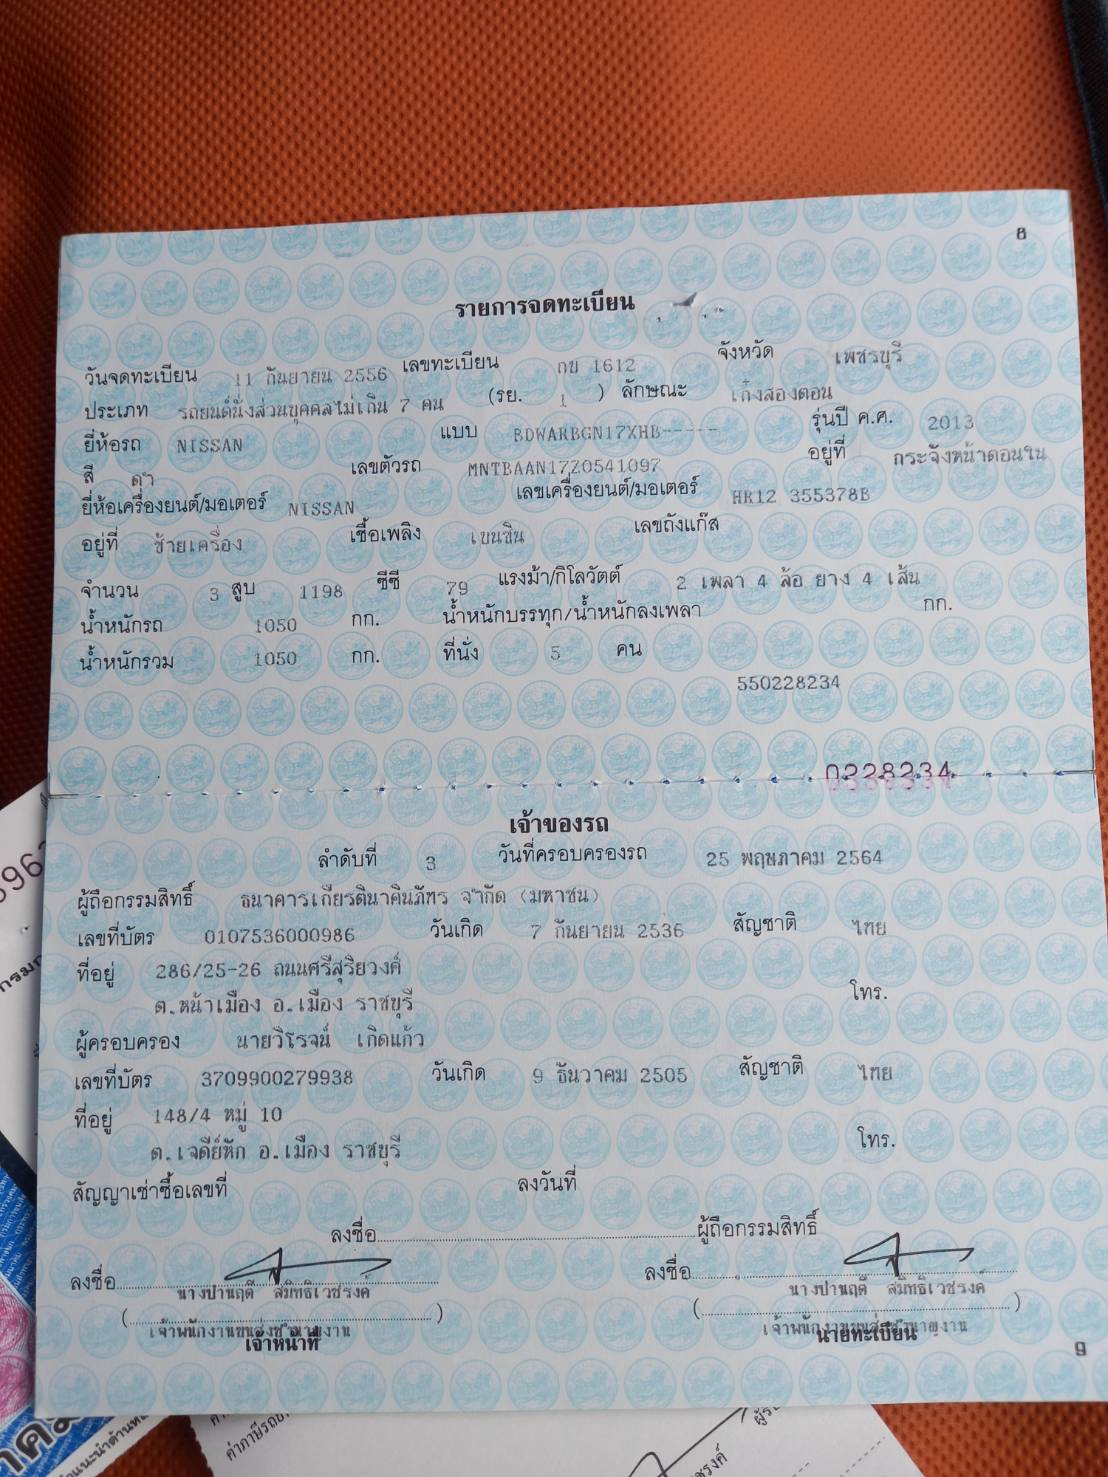 8
รายการจดทะเบียน
วันจดทะเบียน 11 กันยายน 2556 เลขทะเบียน กข 1612 จังหวัด เพชรบุรี
ประเภท รถยนต์นั่งส่วนบุคคลไม่เกิน 7 คน (รย. 1 ) ลักษณะ เก๋งสองตอน
ยี่ห้อรถ NISSAN แบบ BDWARBGN17XHB----- รุ่นปี ค.ศ. 2013
สี ดำ เลขตัวรถ MNTBAAN17Z0541097 อยู่ที่ กระจังหน้าตอนใน
ยี่ห้อเครื่องยนต์/มอเตอร์ NISSAN เลขเครื่องยนต์/มอเตอร์ HR12 355378B
อยู่ที่ ซ้ายเครื่อง เชื้อเพลิง เบนซิน เลขถังแก๊ส
จำนวน 3 สูบ 1198 ซีซี 79 แรงม้า/กิโลวัตต์ 2 เพลา 4 ล้อ ยาง 4 เส้น
น้ำหนักรถ 1050 กก. น้ำหนักบรรทุก/น้ำหนักลงเพลา กก.
น้ำหนักรวม 1050 กก. ที่นั่ง 5 คน
550228234
0228234
เจ้าของรถ
ลำดับที่ 3 วันที่ครอบครองรถ 25 พฤษภาคม 2564
ผู้ถือกรรมสิทธิ์ ธนาคารเกียรตินาคินภัทร จำกัด (มหาชน)
เลขที่บัตร 0107536000986 วันเกิด 7 กันยายน 2536 สัญชาติ ไทย
ที่อยู่ 286/25-26 ถนนศรีสุริยวงศ์
ต.หน้าเมือง อ.เมือง ราชบุรี โทร.
ผู้ครอบครอง นายวิโรจน์ เกิดแก้ว
เลขที่บัตร 3709900279938 วันเกิด 9 ธันวาคม 2505 สัญชาติ ไทย
ที่อยู่ 148/4 หมู่ 10
ต.เจดีย์หัก อ.เมือง ราชบุรี โทร.
สัญญาเช่าซื้อเลขที่ ลงวันที่
ลงชื่อ ผู้ถือกรรมสิทธิ์
ลงชื่อ ลงชื่อ
นางปานฤดี สมิทธิเวชรงค์ นางปานฤดี สมิทธิเวชรงค์
( ) ( )
เจ้าพนักงานขนส่งชำนาญงาน เจ้าพนักงานขนส่งชำนาญงาน
เจ้าหน้าที่ นายทะเบียน
9